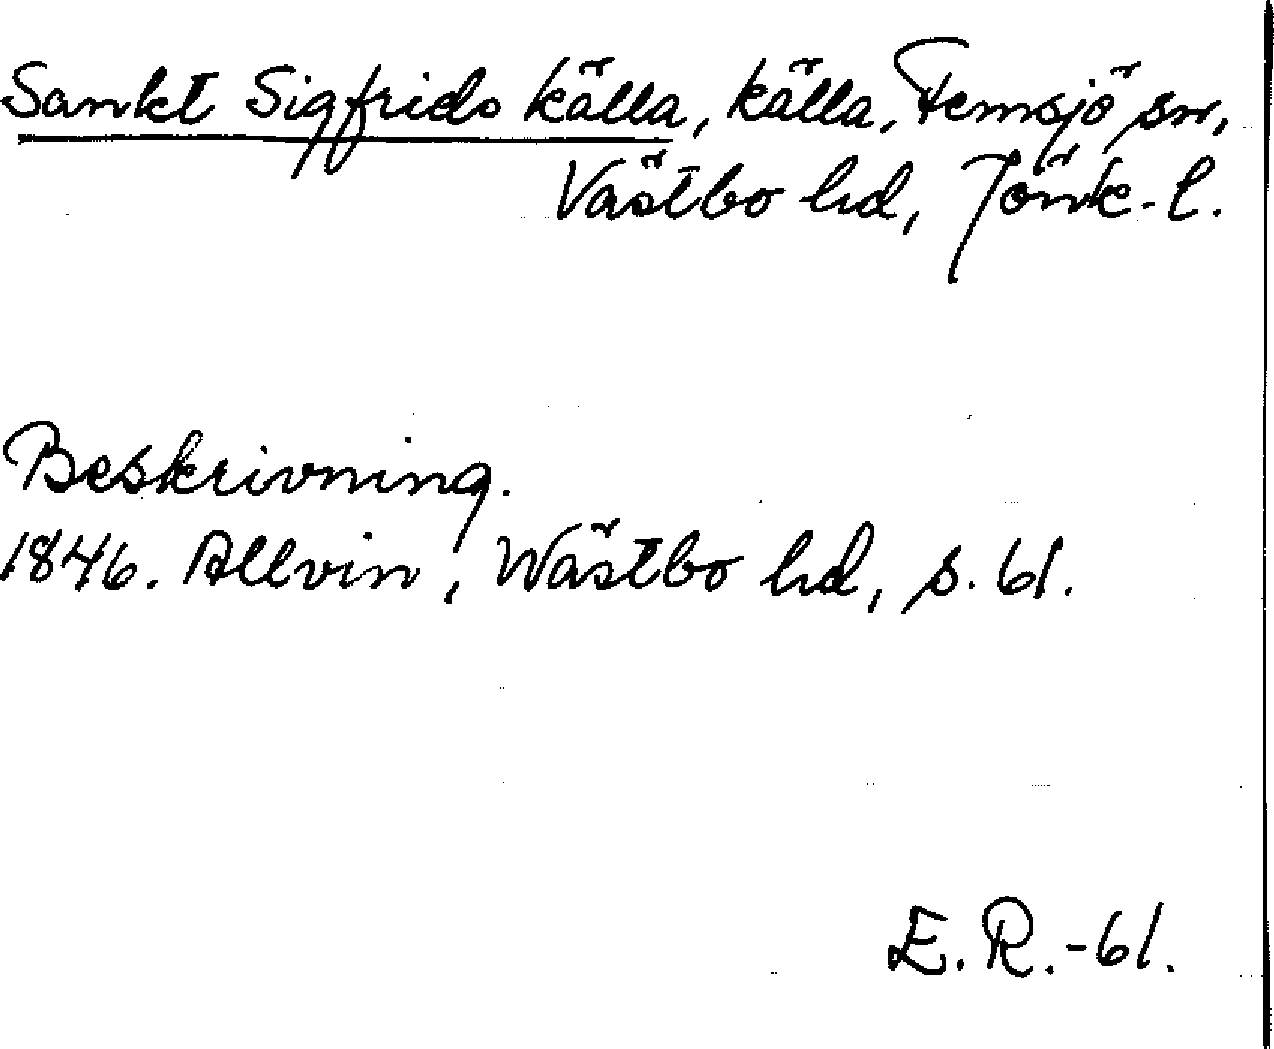 Sankt Sigfrids källa, källa, Femsjö sn,
Västbo hd, Jönk. l.
Beskrivning.
1846. Allvin, Wästbo hd, s. 61.
E. R. -61.